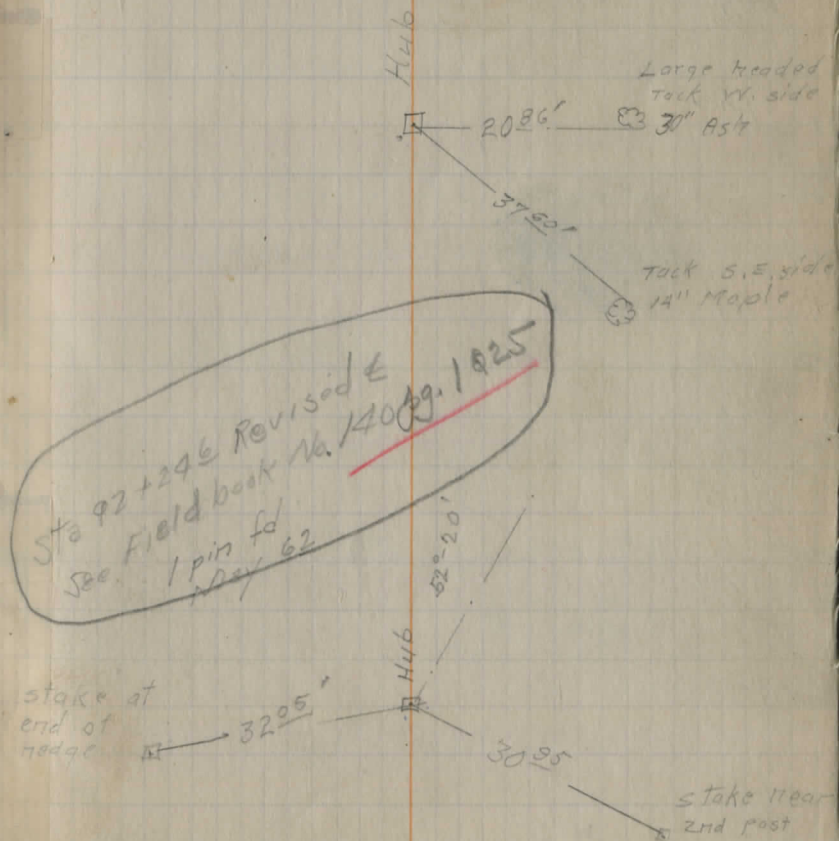 Hub
Large headed
Tack W. side
30" Ash
20 86'
37 60'
Tack S.E. side
14" Maple
Sta 92+24 6 Revised ℄
See Field book No. 140 pg. 1925
1 pin fd
62
52°-20'
Hub
stake at
end of
hedge
32 05'
30 95
stake near
2nd post